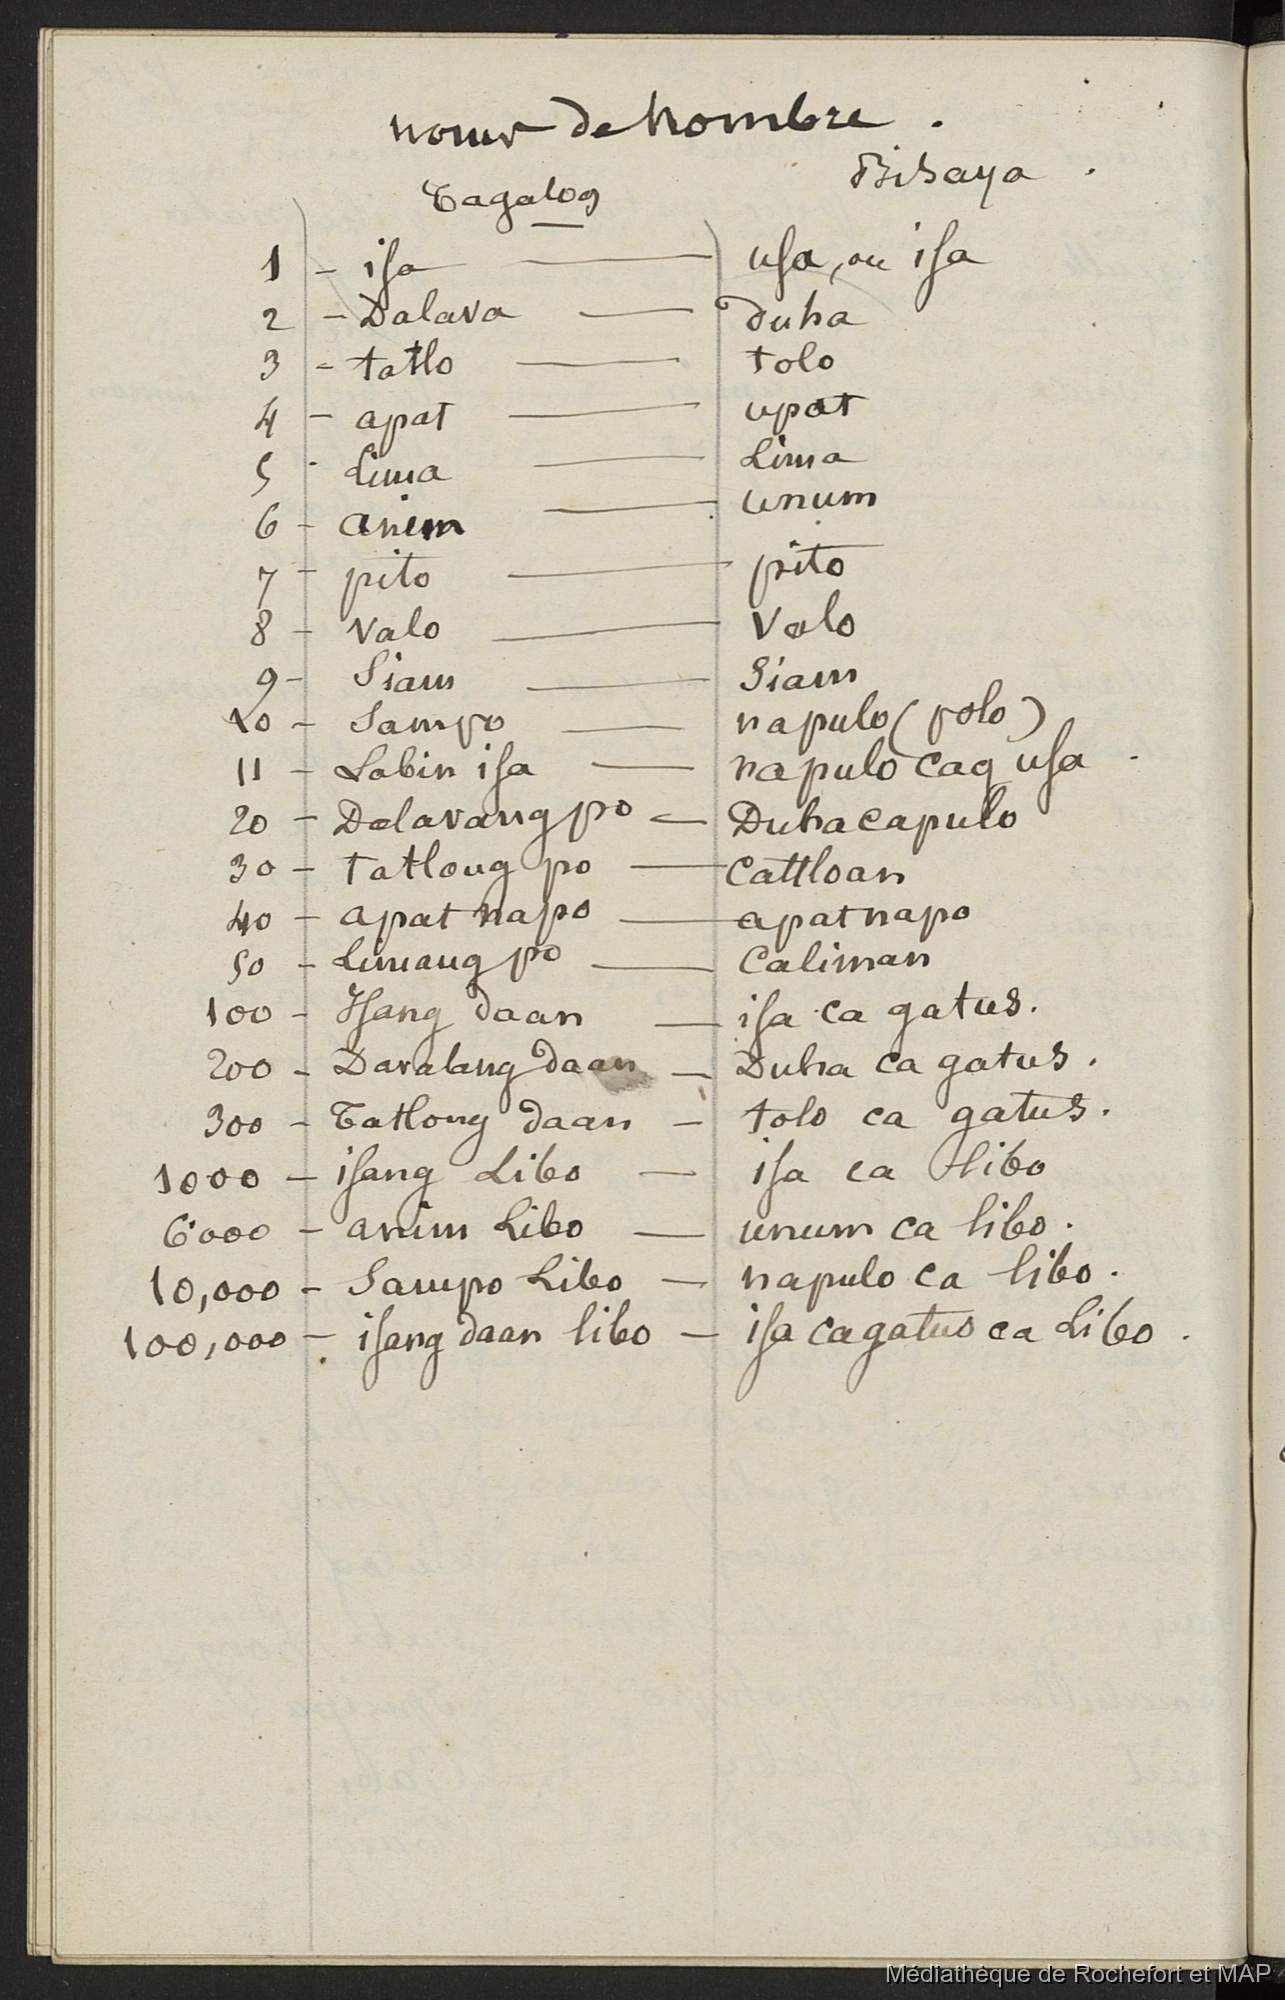 noms de nombre.
Tagalog Bisaya.
1 - isa — usa, ou isa
2 - Dalava — Duha
3 - tatlo — tolo
4 - apat — upat
5 - Lima — Lima
6 - anim — unum
7 - pito — pito
8 - valo — valo
9 - Siam — Siam
10 - Sampo — napulo (polo)
11 - Labin isa — napulo cag usa.
20 - Dalavang po — Duhacapulo
30 - tatlong po — cattloan
40 - apat napo — apatnapo
50 - Limang po — Caliman
100 - Isang daan — isa ca gatus.
200 - Davalang daan — Duha ca gatus.
300 - Tatlong daan — tolo ca gatus.
1000 - isang Libo — isa ca libo
6000 - anim Libo — unum ca libo.
10,000 - Sampo Libo — napulo ca libo.
100,000 - isang daan libo — isa cagatus ca Libo.
Médiathèque de Rochefort et MAP